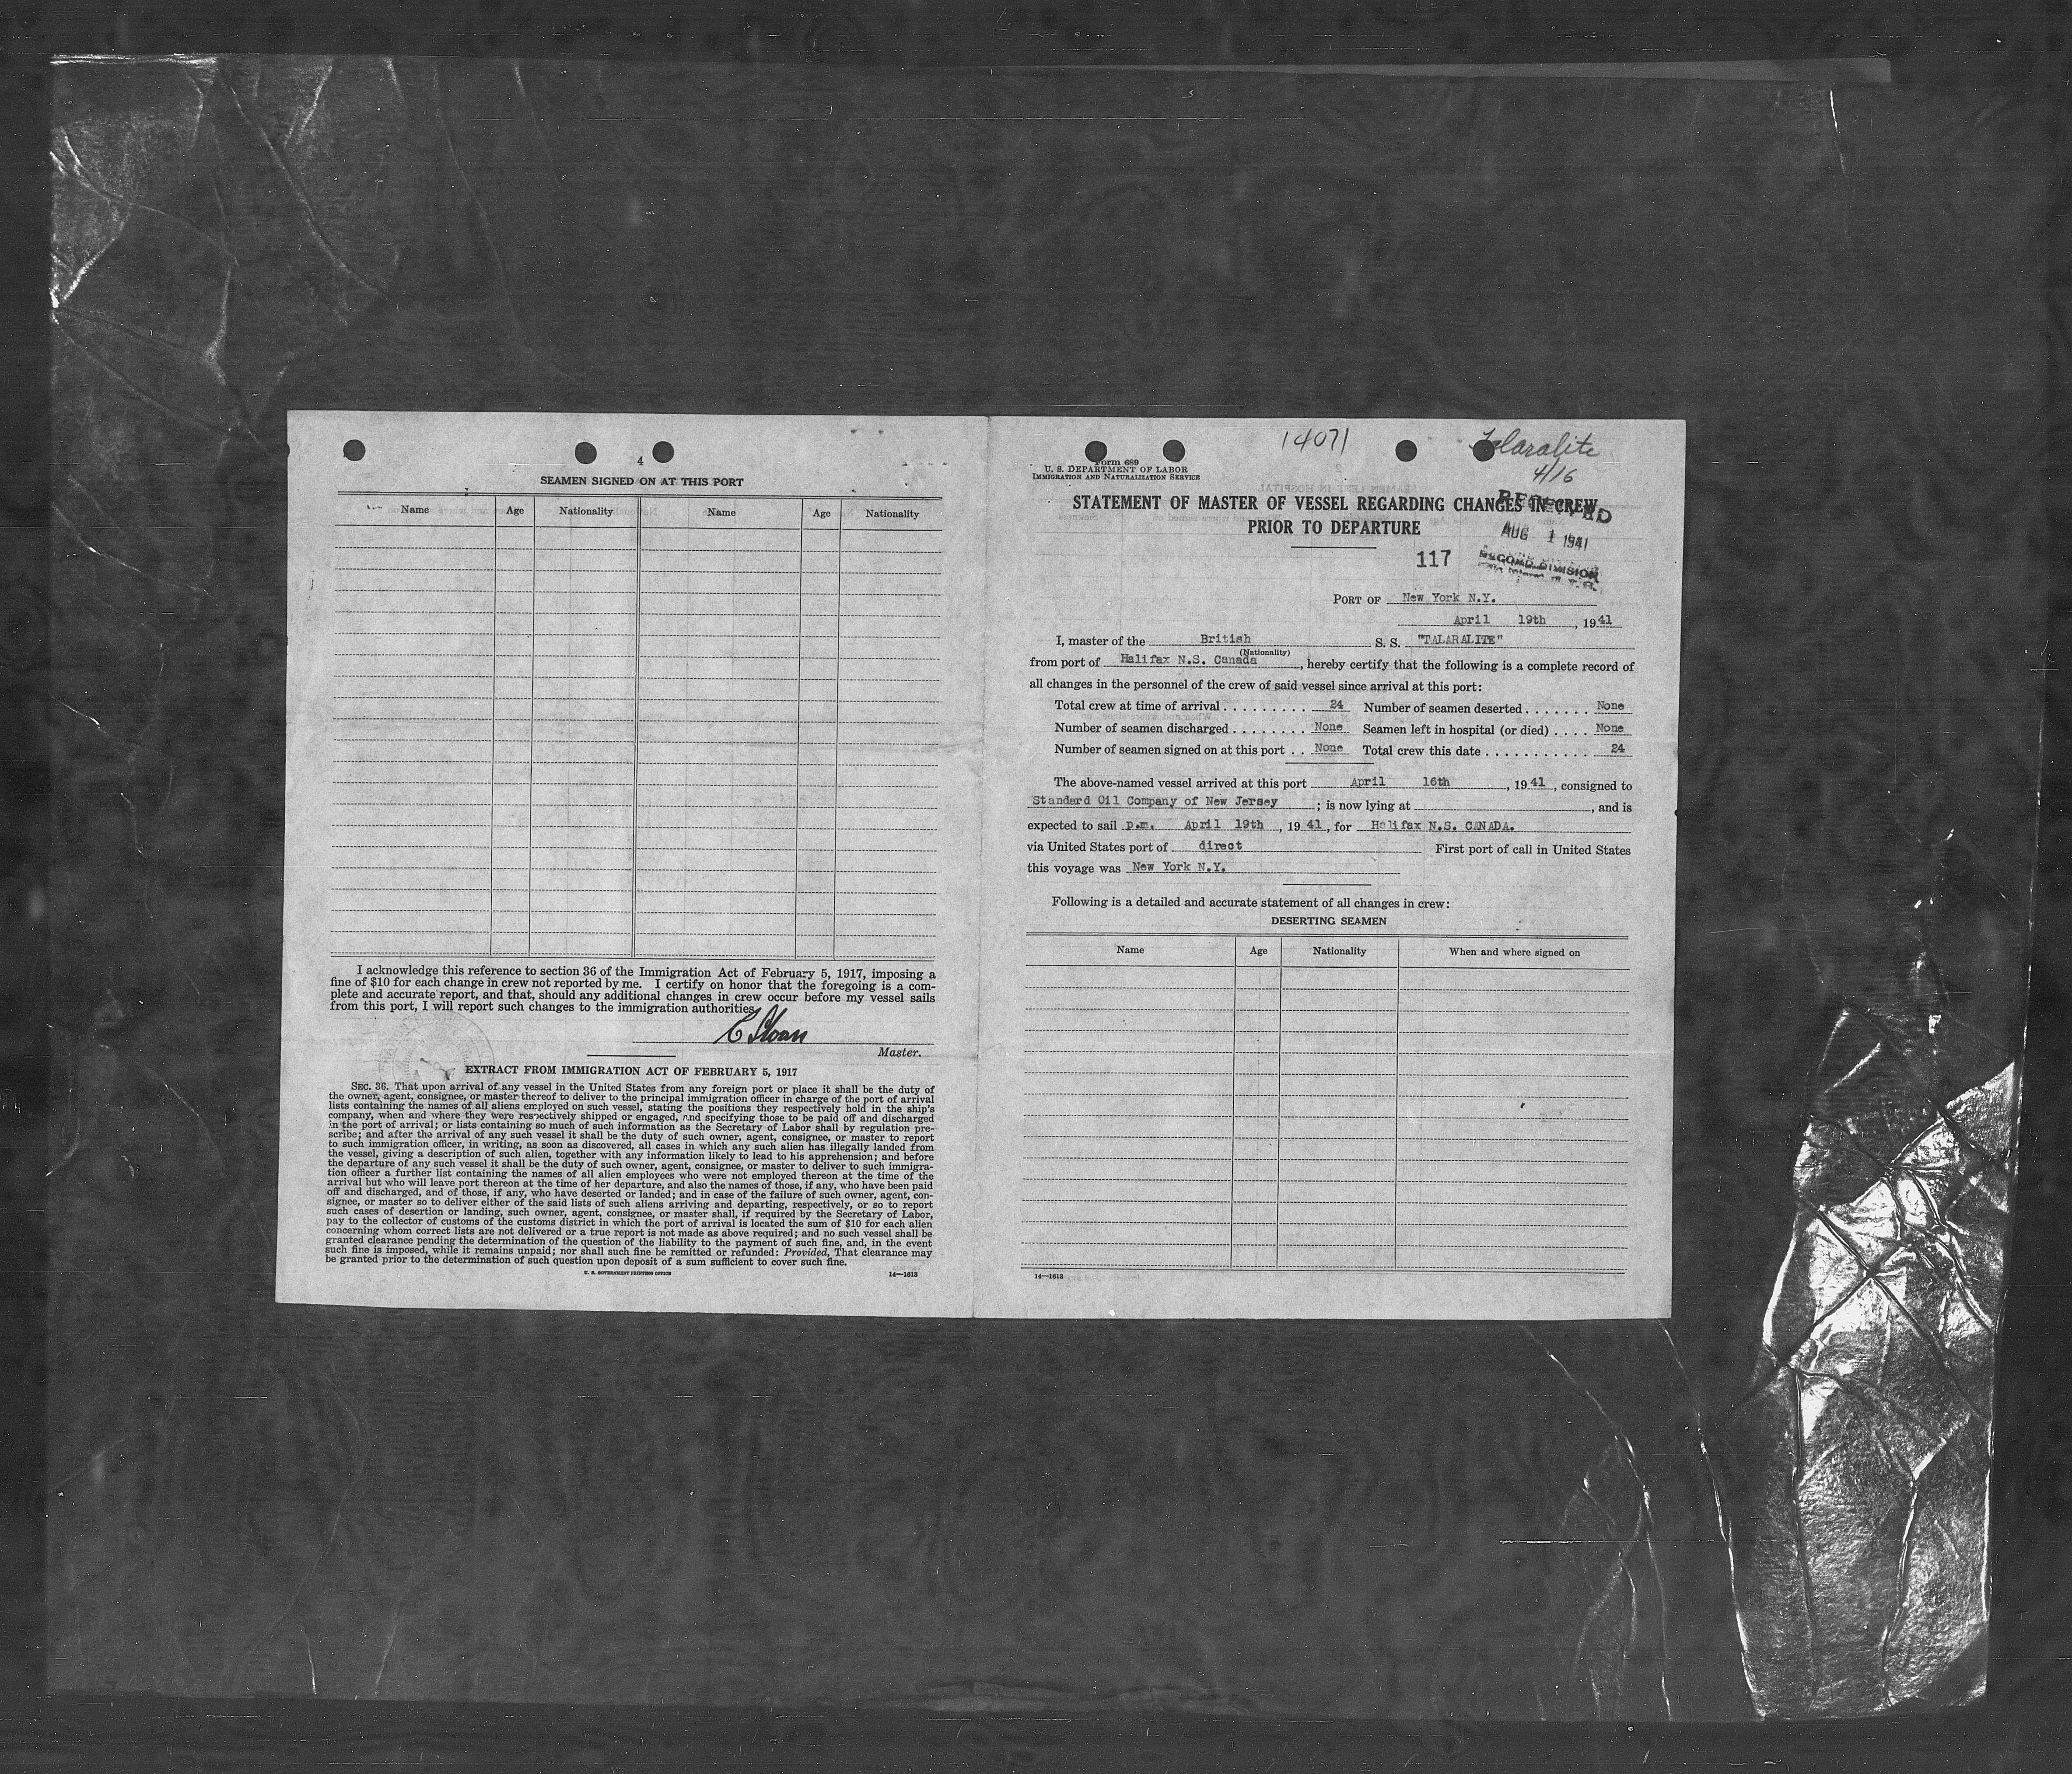 4
SEAMEN SIGNED ON AT THIS PORT
Name Age Nationality Name Age Nationality
I acknowledge this reference to section 36 of the Immigration Act of February 5, 1917, imposing a
fine of $10 for each change in crew not reported by me. I certify on honor that the foregoing is a com-
plete and accurate report, and that, should any additional changes in crew occur before my vessel sails
from this port, I will report such changes to the immigration authorities.
C Sloan
Master.
EXTRACT FROM IMMIGRATION ACT OF FEBRUARY 5, 1917
SEC. 36. That upon arrival of any vessel in the United States from any foreign port or place it shall be the duty of
the owner, agent, consignee, or master thereof to deliver to the principal immigration officer in charge of the port of arrival
lists containing the names of all aliens employed on such vessel, stating the positions they respectively hold in the ship's
company, when and where they were respectively shipped or engaged, and specifying those to be paid off and discharged
in the port of arrival; or lists containing so much of such information as the Secretary of Labor shall by regulation pre-
scribe; and after the arrival of any such vessel it shall be the duty of such owner, agent, consignee, or master to report
to such immigration officer, in writing, as soon as discovered, all cases in which any such alien has illegally landed from
the vessel, giving a description of such alien, together with any information likely to lead to his apprehension; and before
the departure of any such vessel it shall be the duty of such owner, agent, consignee, or master to deliver to such immigra-
tion officer a further list containing the names of all alien employees who were not employed thereon at the time of the
arrival but who will leave port thereon at the time of her departure, and also the names of those, if any, who have been paid
off and discharged, and of those, if any, who have deserted or landed; and in case of the failure of such owner, agent, con-
signee, or master so to deliver either of the said lists of such aliens arriving and departing, respectively, or so to report
such cases of desertion or landing, such owner, agent, consignee, or master shall, if required by the Secretary of Labor,
pay to the collector of customs of the customs district in which the port of arrival is located the sum of $10 for each alien
concerning whom correct lists are not delivered or a true report is not made as above required; and no such vessel shall be
granted clearance pending the determination of the question of the liability to the payment of such fine, and, in the event
such fine is imposed, while it remains unpaid; nor shall such fine be remitted or refunded: Provided, That clearance may
be granted prior to the determination of such question upon deposit of a sum sufficient to cover such fine.
U. S. GOVERNMENT PRINTING OFFICE 14—1613
14071
Talaralite
4/16
Form 689
U. S. DEPARTMENT OF LABOR
IMMIGRATION AND NATURALIZATION SERVICE
STATEMENT OF MASTER OF VESSEL REGARDING CHANGES IN CREW
PRIOR TO DEPARTURE
RECEIVED
AUG 1 1941
SECOND DIVISION
117
PORT OF New York N.Y.
April 19th, 1941
I, master of the British S. S. "TALARALITE"
(Nationality)
from port of Halifax N.S. Canada, hereby certify that the following is a complete record of
all changes in the personnel of the crew of said vessel since arrival at this port:
Total crew at time of arrival . . . . . . . . . 24 Number of seamen deserted . . . . . . . None
Number of seamen discharged . . . . . . . . None Seamen left in hospital (or died) . . . . None
Number of seamen signed on at this port . . None Total crew this date . . . . . . . . . . . 24
The above-named vessel arrived at this port April 16th, 1941, consigned to
Standard Oil Company of New Jersey ; is now lying at , and is
expected to sail p.m. April 19th, 1941, for Halifax N.S. CANADA.
via United States port of direct First port of call in United States
this voyage was New York N.Y.
Following is a detailed and accurate statement of all changes in crew:
DESERTING SEAMEN
Name Age Nationality When and where signed on
14—1613